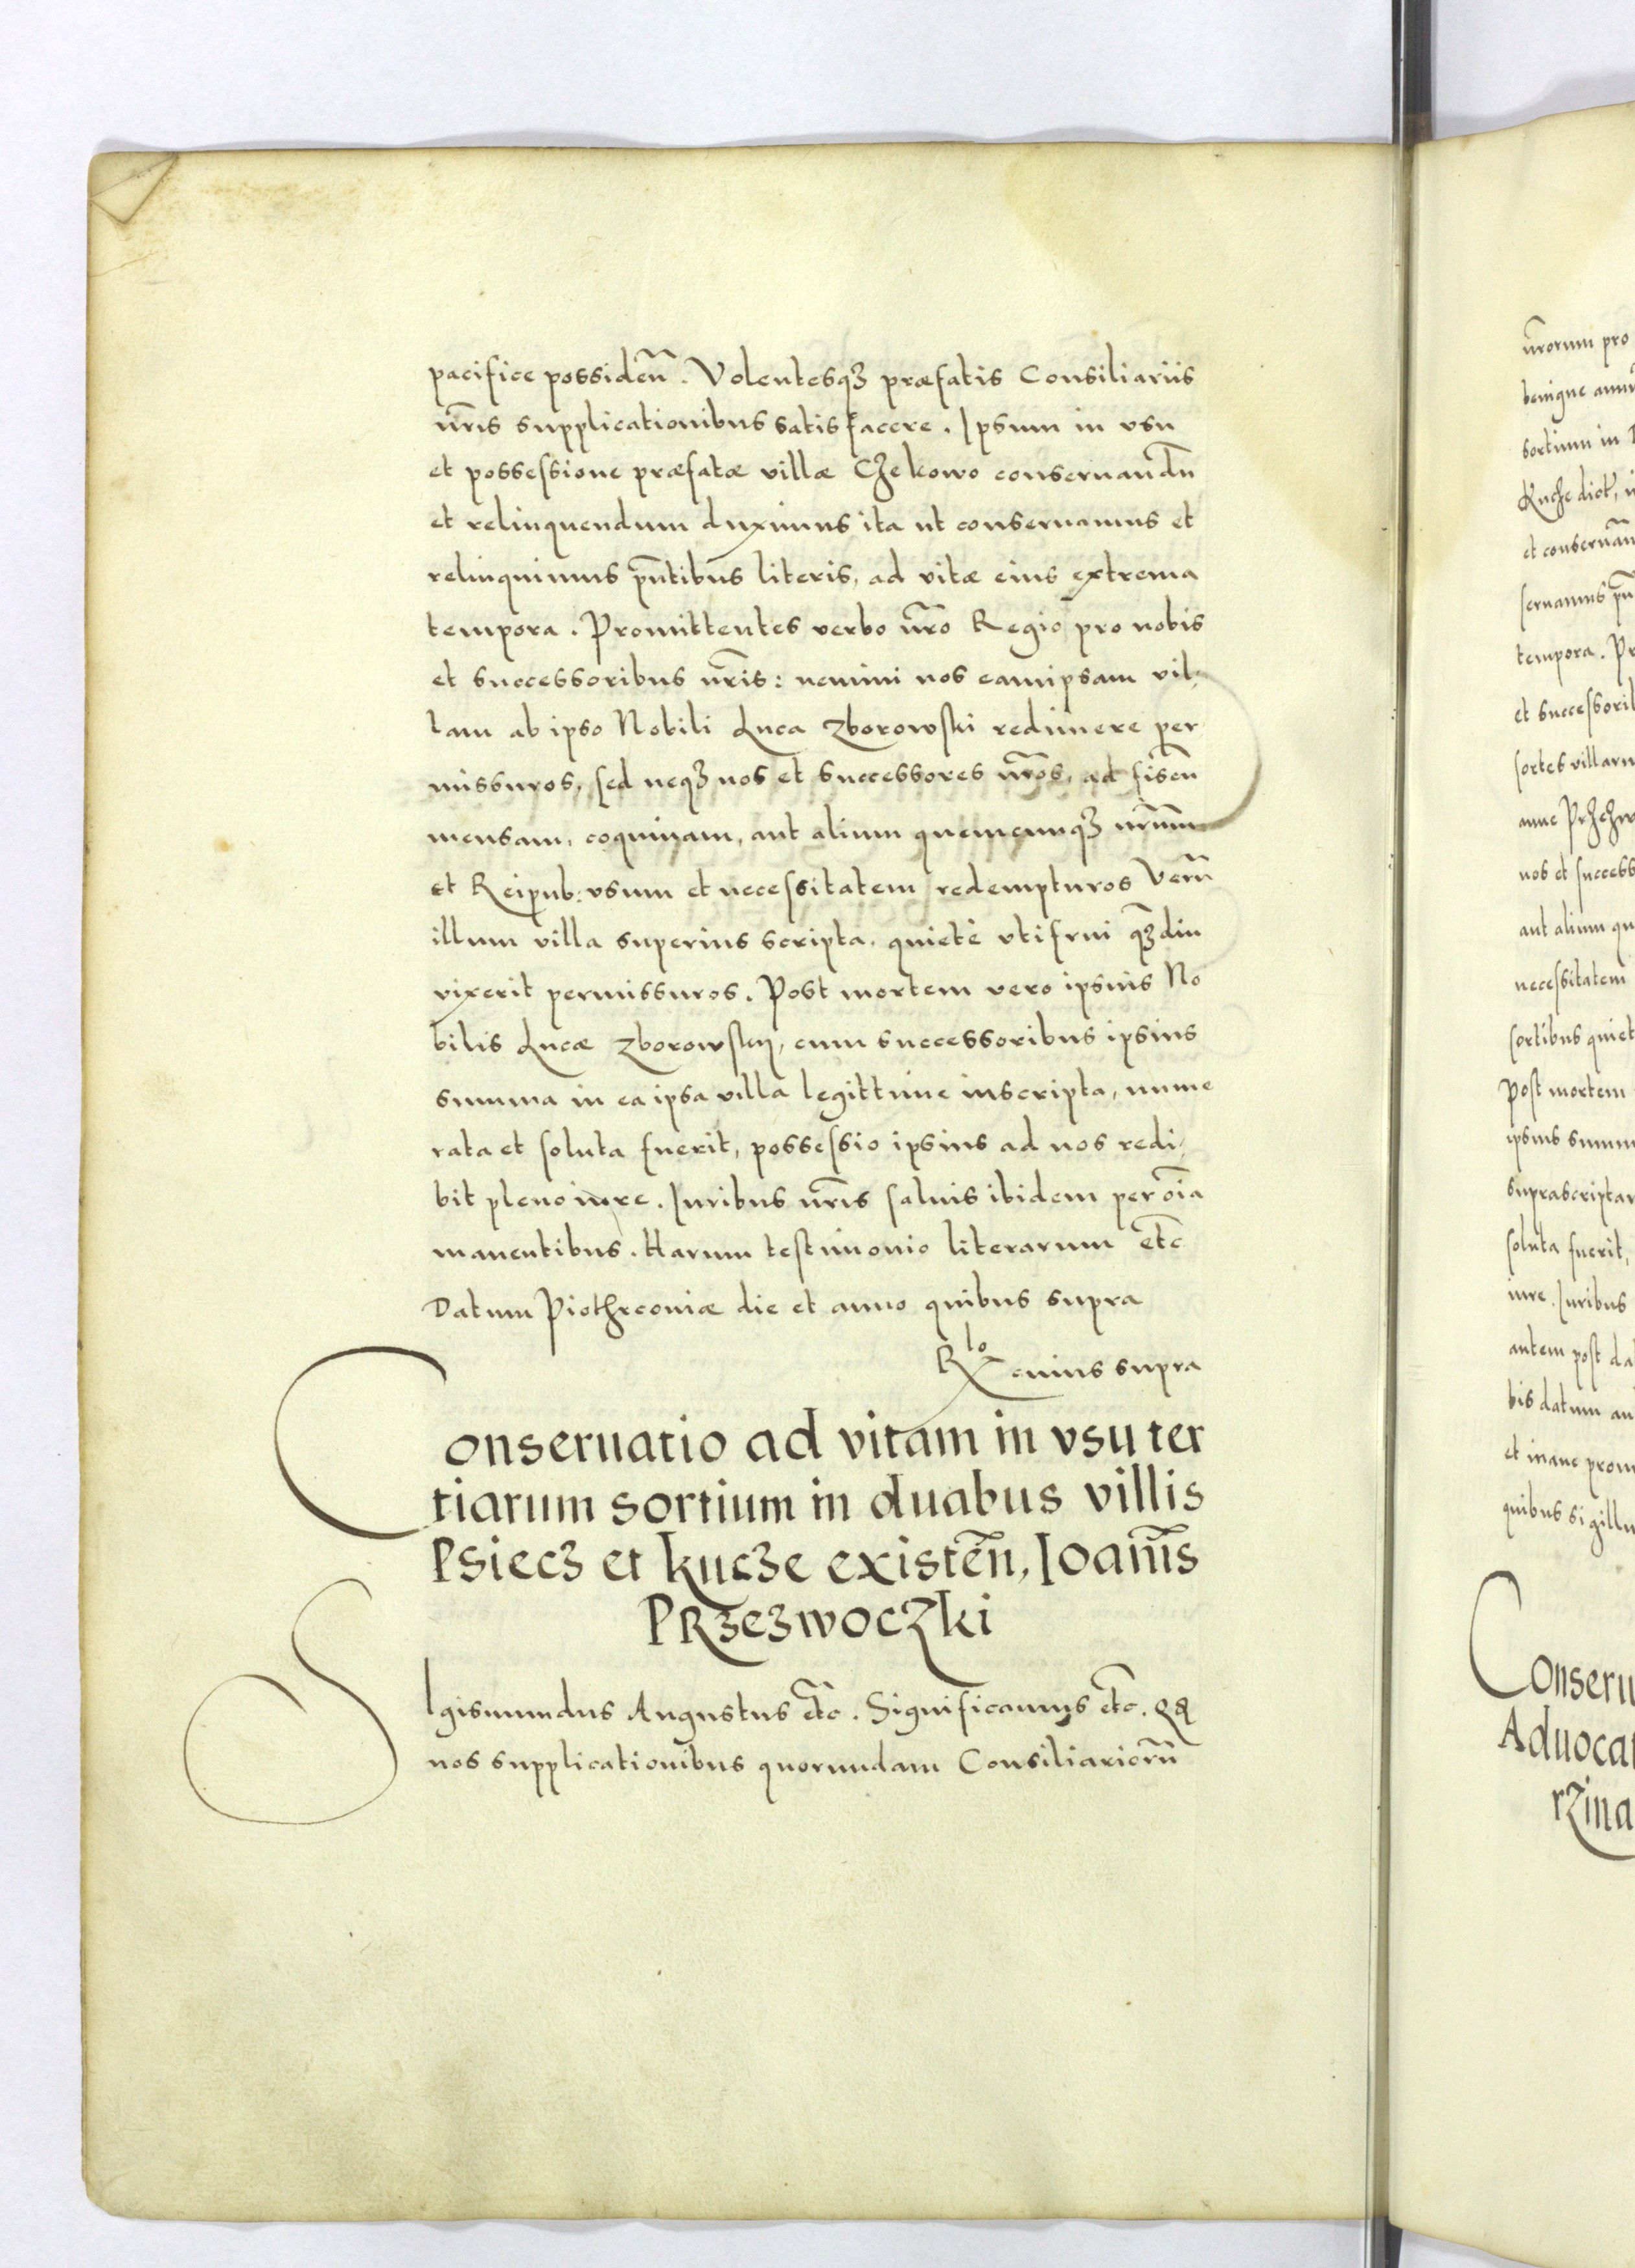 pacifice possideñ. Volentesqʒ præfatis Consiliariis
nr̃is supplicationibus satisfacere. Ipsum in vsu
et possessione præfatæ villæ Cʒekowo conseruandũ
et relinquendum duximus ita ut conseruamus et
relinquimus pñtibus literis, ad vitæ eius extrema
tempora. Promittentes verbo nr̃o Regio pro nobis
et successoribus nr̃is: nemini nos eamipsam vil-
lam ab ipso Nobili Luca Zborowski redimere per
missuros, sed neqʒ nos et successores nr̃os, ad fiscũ
mensam, coquinam, aut alium quemcumqʒ nr̃um
et Reipub: vsum et necessitatem redempturos Verũ
illum villa superius scripta, quietè vtifrui qʒdiu
vixerit permissuros. Post mortem vero ipsius No
bilis Lucæ Zborowskij, cum successoribus ipsius
summa in ea ipsa villa legittime inscripta, nume
rata et soluta fuerit, possessio ipsius ad nos redi-
bit pleno iure. Iuribus nr̃is saluis ibidem per oĩa
manentibus. Harum testimonio literarum etc̃
Datum Piothrconiæ die et anno quibus supra
Rlo cuius supra
Conseruatio ad vitam in vsu ter
tiarum sortium in duabus villis
Psiecʒ et Kucʒe existeñ, Ioañis
Prʒeʒwocʒki
SIgismundus Augustus etc̃. Significamus etc̃. Qꝗ
nos supplicationibus quorundam Consiliariorũ
nr̃orum pro
benigne annu
sortium in
Kucʒe dict,
et conseruan
seruamus pñ
tempora. Pr
et successorib
sortes villaru
anne Prʒeʒw
nos et success
aut alium qu
necessitatem
sortibus quiet
Post mortem
ipsius summ
suprascriptar
soluta fuerit,
iure. Iuribus
autem post da
bis datum an
et inane prom
quibus sigillu
Conseru
Aduocat
rzina